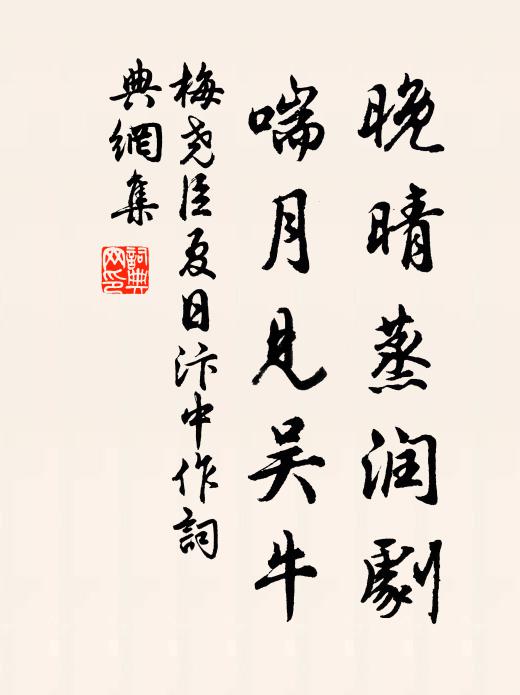 晚晴蒸润劇
喘月見吴牛
梅尧臣夏日汴中作詞
典網集
詞典